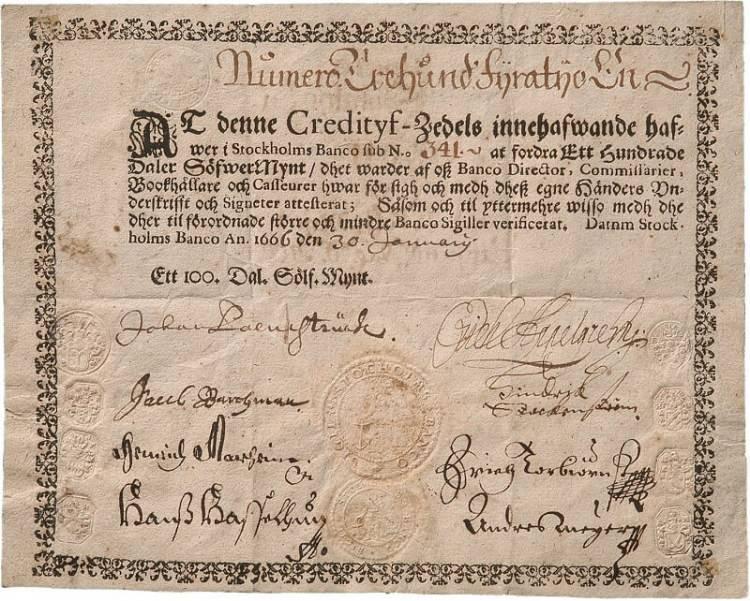 Numero. Trehund Fyratyo En
AT denne Credityf-Zedels innehafwande haf-
wer i Stockholms Banco sub N.o 341. at fordra Ett Hundrade
Daler SölfwerMynt / dhet warder af oß Banco Director, Commissarier,
Bookhållare och Casseurer hwar för sigh och medh deß egne Händers Vn-
derskrifft och Signeter attesterat; Såsom och til yttermehre wisso medh dhe
dher til förordnade större och mindre Banco Sigiller verificerat. Datum Stock-
holms Banco An. 1666 den 30. January
Ett 100. Dal. Sölf. Mynt.
Johan
Jacob
Hindrich
Stockenström
Hanß
Torbiörn
Andres
STOCKHOLMS BANCO